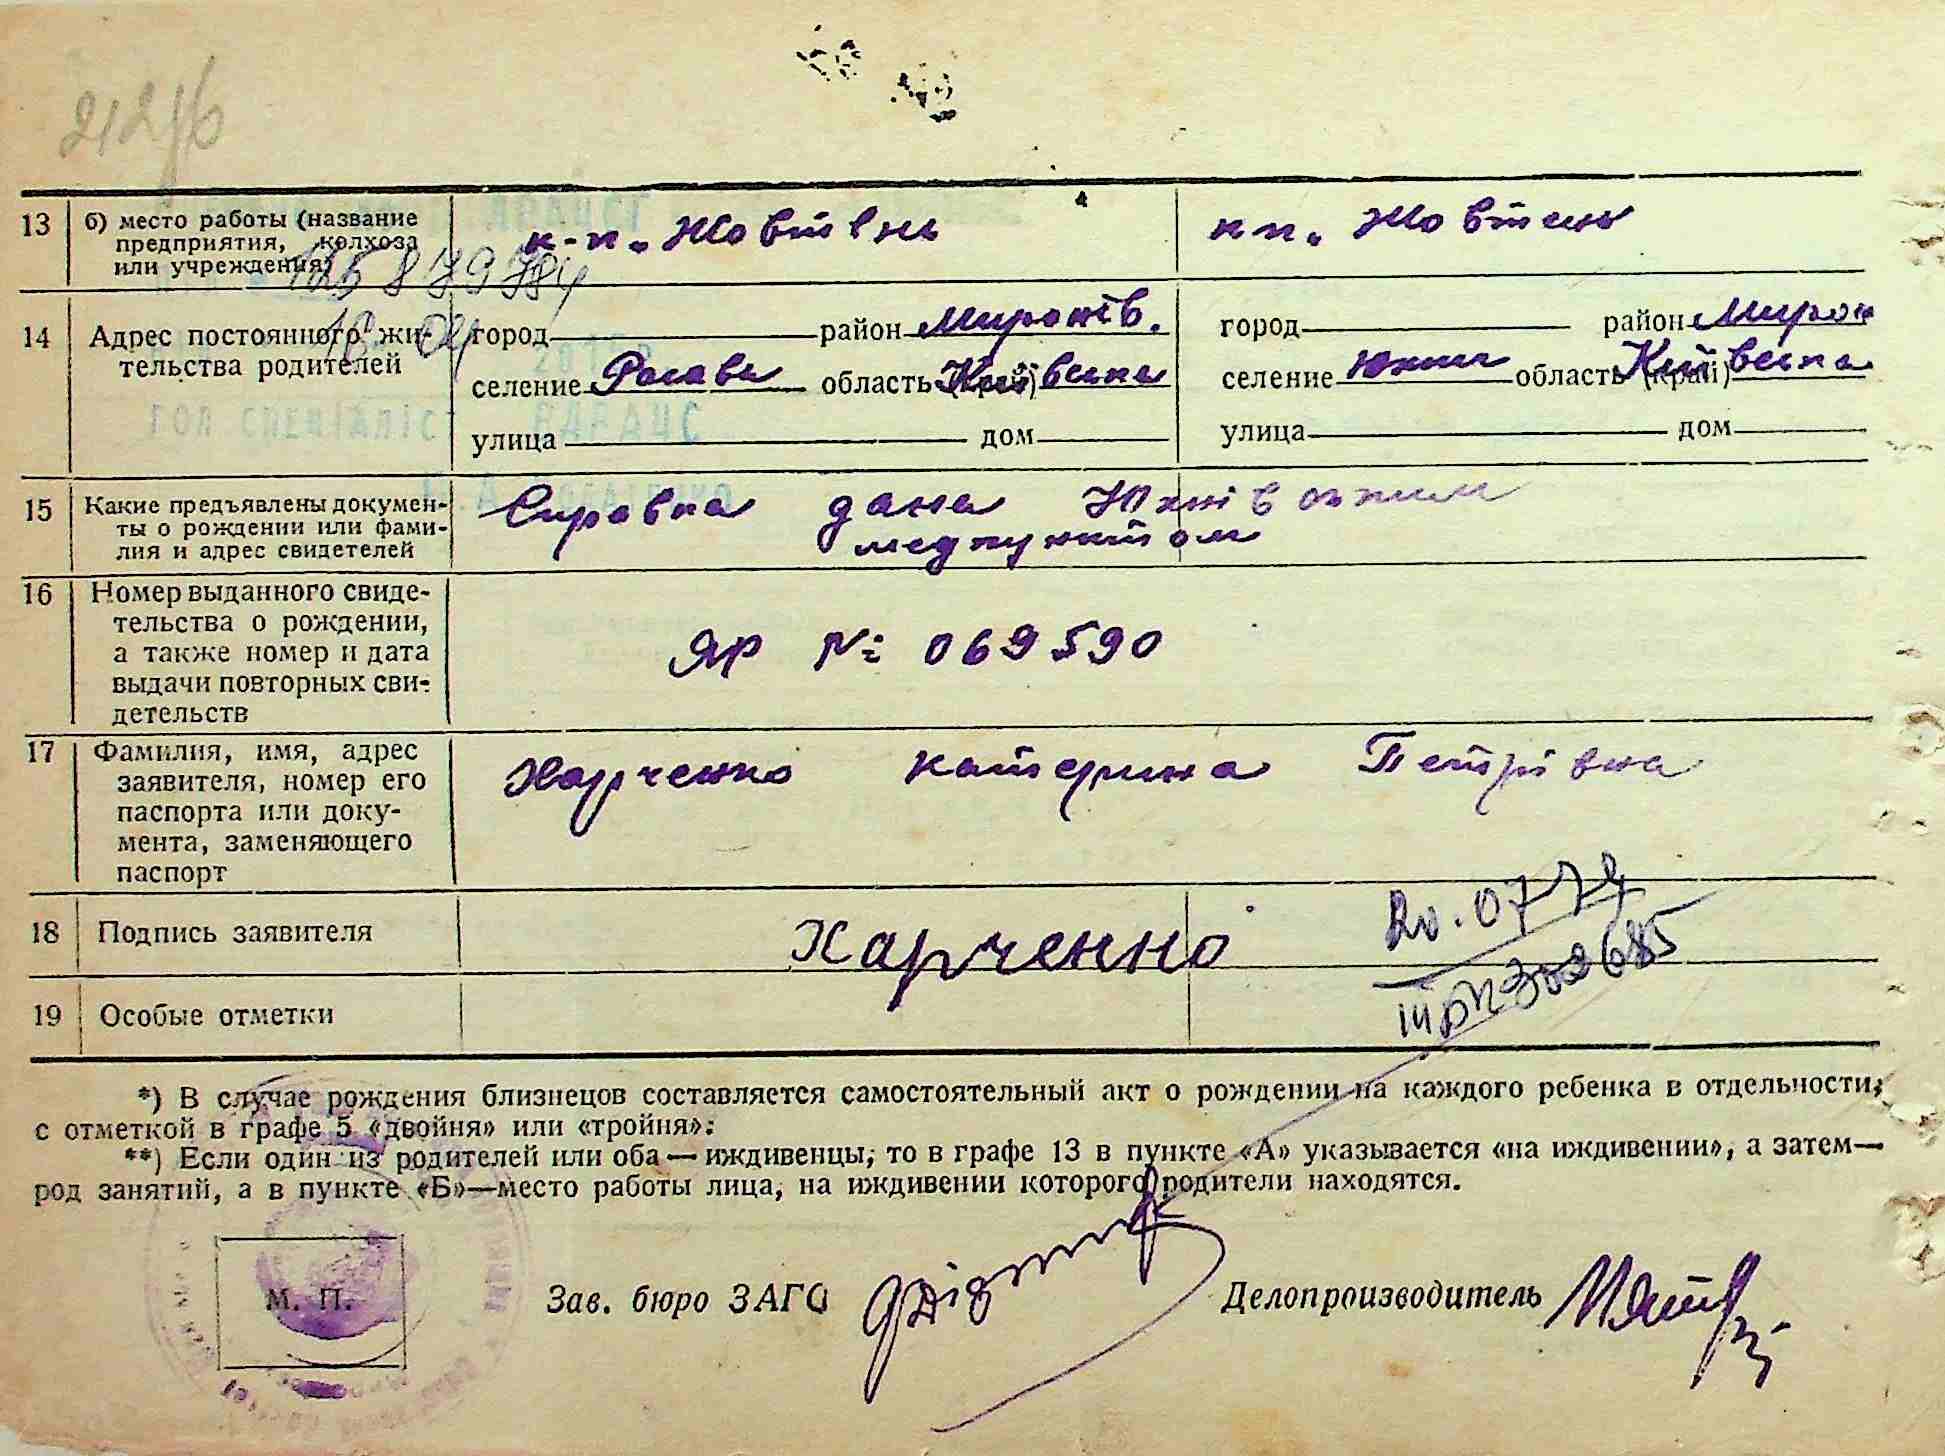 13 б) место работы (название
предприятия, колхоза
или учреждения)
к-п. Жовтень
кп. Жовтень
14 Адрес постоянного жи-
тельства родителей
город район Миронів.
селение Росава область (край) Київська
улица дом
город район Мирон
селение Юхни область (край) Київська
улица дом
15 Какие предъявлены докумен-
ты о рождении или фами-
лия и адрес свидетелей
Справка дана Юхнівським
медпунктом
16 Номер выданного свиде-
тельства о рождении,
а также номер и дата
выдачи повторных сви-
детельств
ЯР № 069590
17 Фамилия, имя, адрес
заявителя, номер его
паспорта или доку-
мента, заменяющего
паспорт
Харченко Катерина Петрівна
18 Подпись заявителя
Харченко
20.07 79
19 Особые отметки
*) В случае рождения близнецов составляется самостоятельный акт о рождении на каждого ребенка в отдельности,
с отметкой в графе 5 «двойня» или «тройня».
**) Если один из родителей или оба — иждивенцы, то в графе 13 в пункте «А» указывается «на иждивении», а затем—
род занятий, а в пункте «Б»—место работы лица, на иждивении которого родители находятся.
М. П.
Зав. бюро ЗАГС
Делопроизводитель